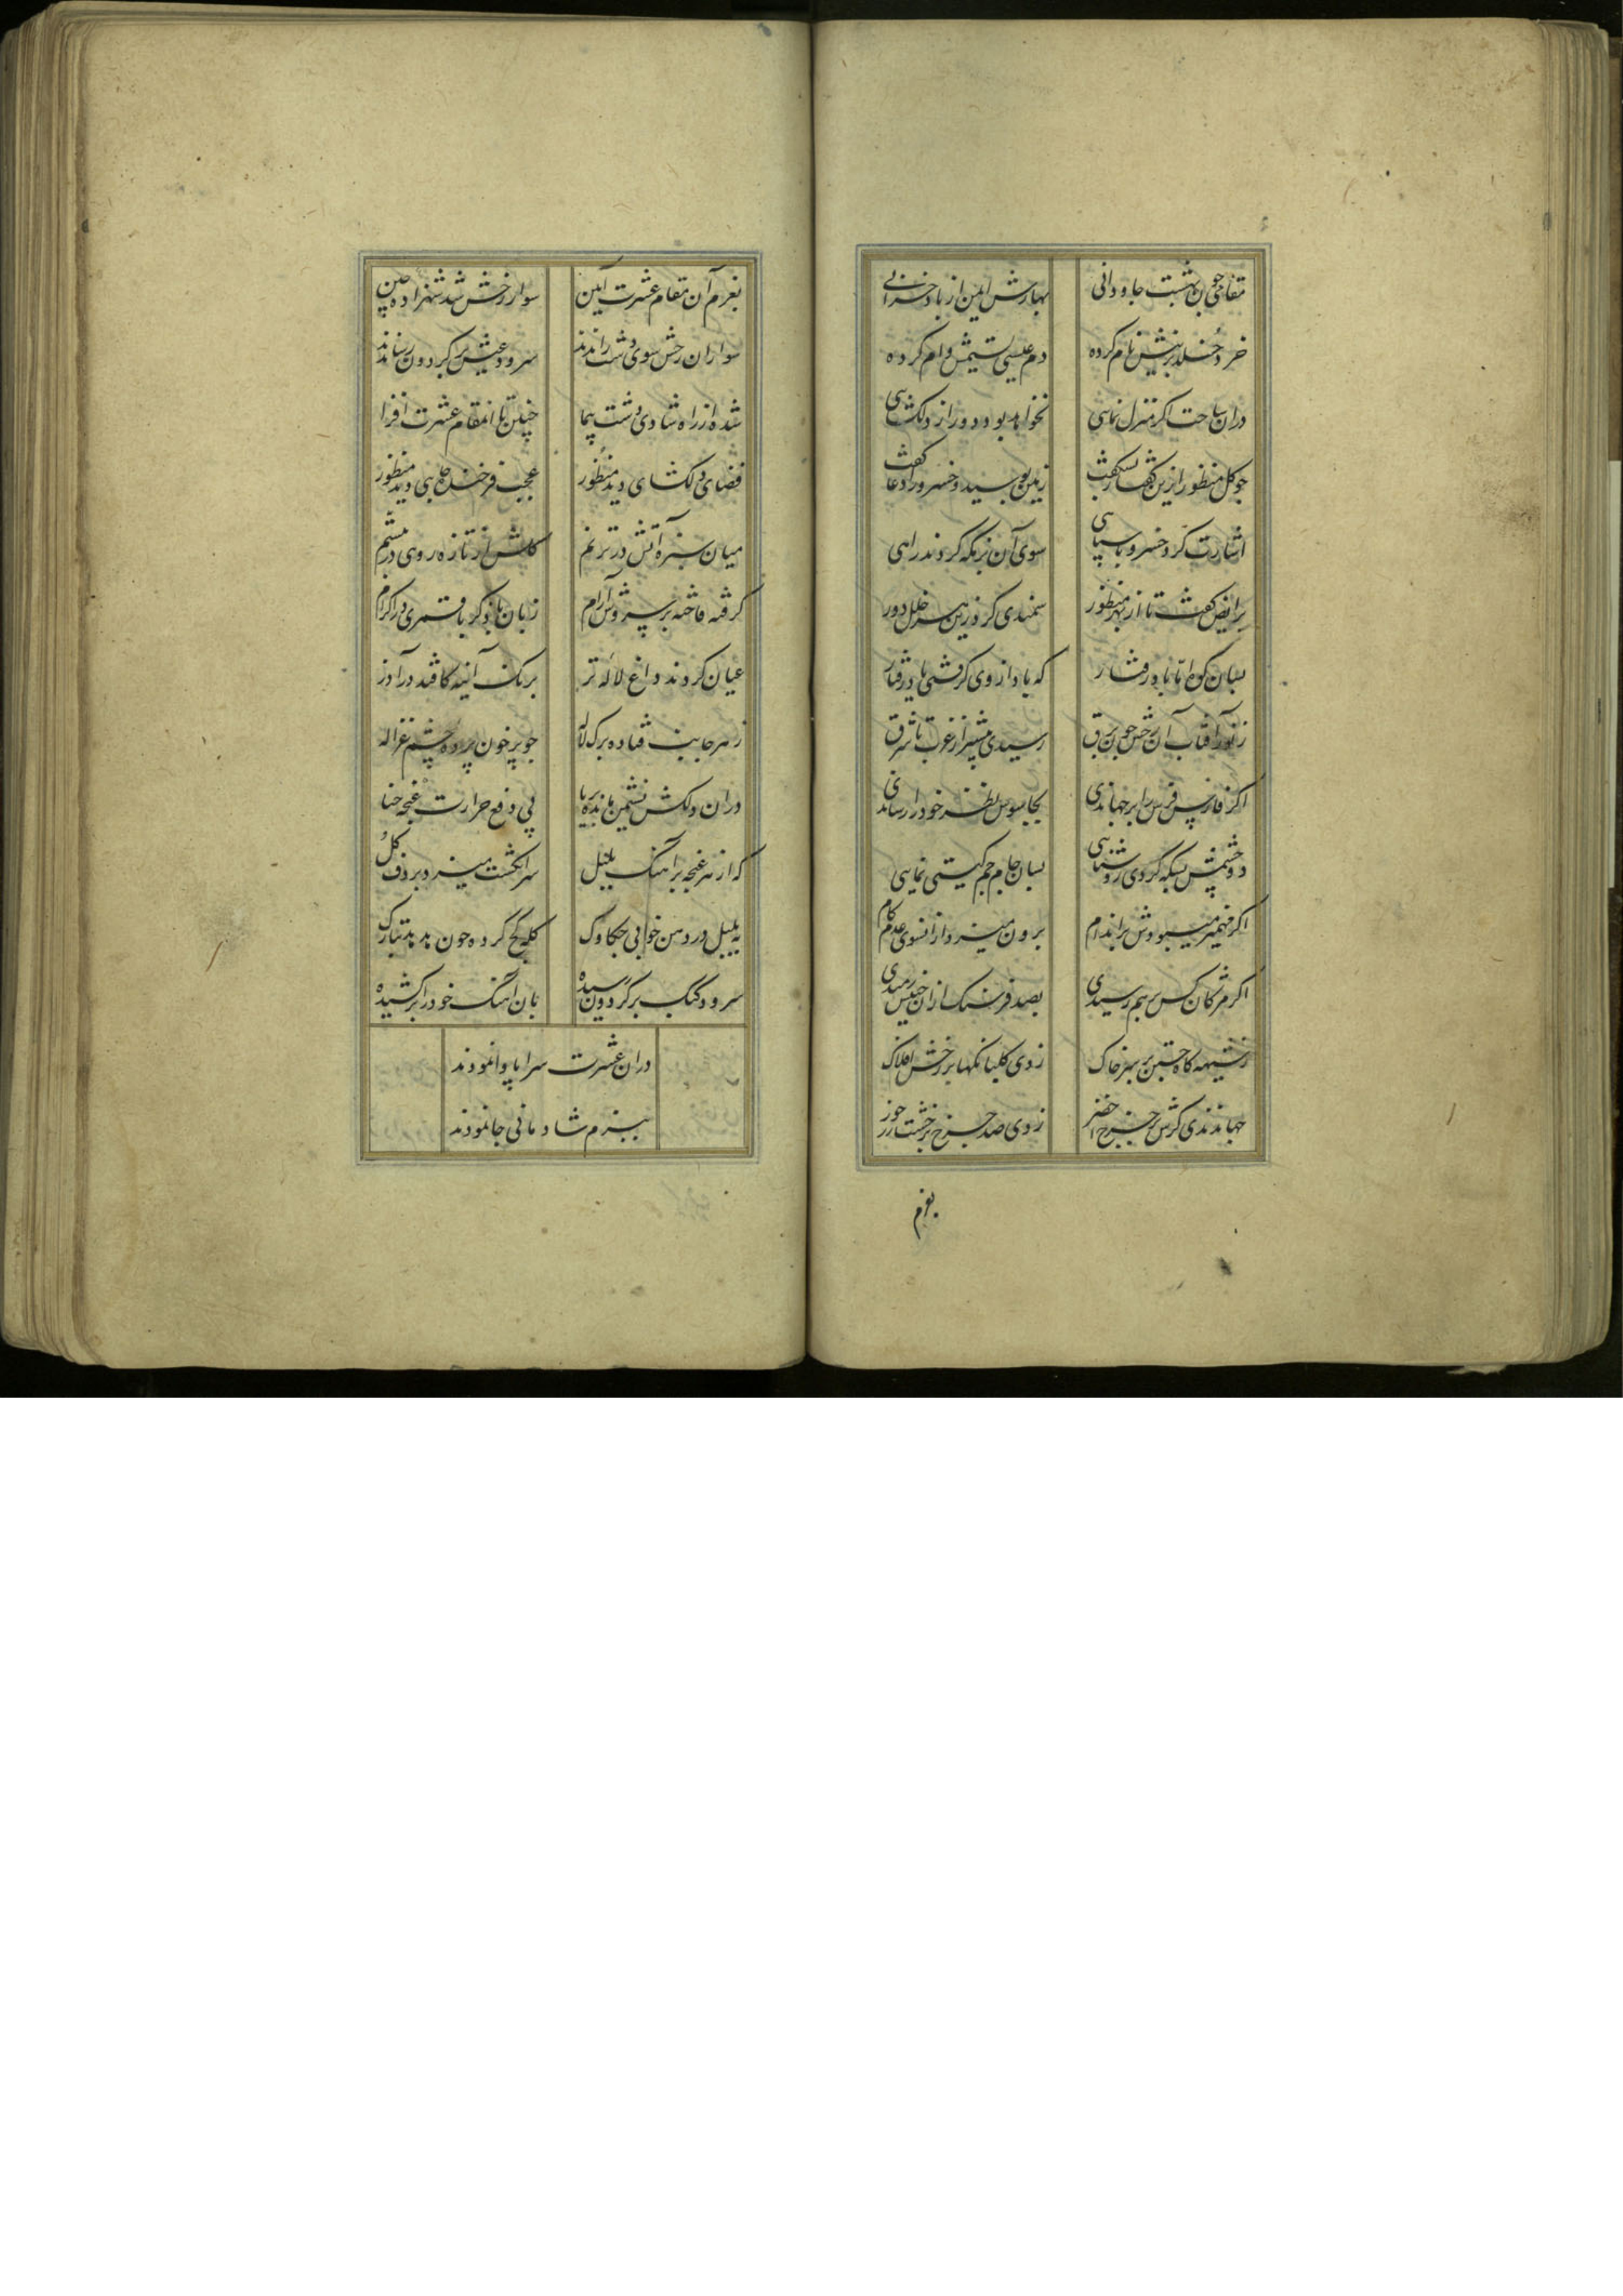 مقامی چون بهشت جاودانی بهارش ایمن از باد خزانی
خرد خلد برینش نام کرده دم عیسی نسیمش وام کرده
دران ساحت اکر منزل نمایی نخواهد بود دور از دلکشایی
چو کل منظور ازین کفتار بشکفت زمین بوسید و خسرو را دعا کفت
اشارت کرد خسرو با سپاهی سوی آن نزهتکه کردند راهی
برایض کفت تا از بهر منظور سمندی کرد زین هر خلل دور
بسان کوه اما باد رفتار که باد از وی کرفتی یاد رفتار
ز نور آفتاب آن رخش چون برق رسیدی پیشتر از غرب تا شرق
اکر فارس فرس را برجهاندی بجاسوس نظر خود را رساندی
دو چشمش بسکه کردی روشنایی بسان جام جم کیتی نمایی
اکر مهمیز میبودش بر اندام برون میزد ازانسوی عدم کام
اکر مژکان کس بر هم رسیدی بصد فرسنک ازان جنبش رمیدی
ز شیهه کاه جستن بر سر خاک زدی کلبانکها بر رخش افلاک
جهاندندی کرش بر چرخ اخضر زدی صد چرخ بر خشت زر خور
بعزم
بعزم آن مقام عشرت آیین سوار رخش شد شهزاده چین
سواران رخش سوی دشت راندند سرود عیش بر کردون رساندند
شده از راه شادی دشت پیما چنین تا انمقام عشرت افزا
فضای دلکشای دید منظور عجب فرخنده جایی دید منظور
میان سبزه آبش در ترنم کلش از تازه رویی در تبسم
کرفته فاخته بر سروش آرام زبان با ذکر با قمری در اکرام
عیان کردند داغ لاله تر برنک آینه کافتد در آذر
ز هر جانب فتاده برک لاله چو بر خون پرده چشم غزاله
دران دلکش نشیمن مانده بر پا پی دفع حرارت غنچه حنا
که از هر غنچه بر آهنک بلبل سر انکشت میزد بر دف کل
به بلبل در دهن خوانی چکاوک کله کج کرده چون هدهد بتارک
سرود کبک بر کردون رسیده بان آهنک خود را بر کشیده
دران عشرت سرا پا وانمودند
ببزم شادمانی جا نمودند